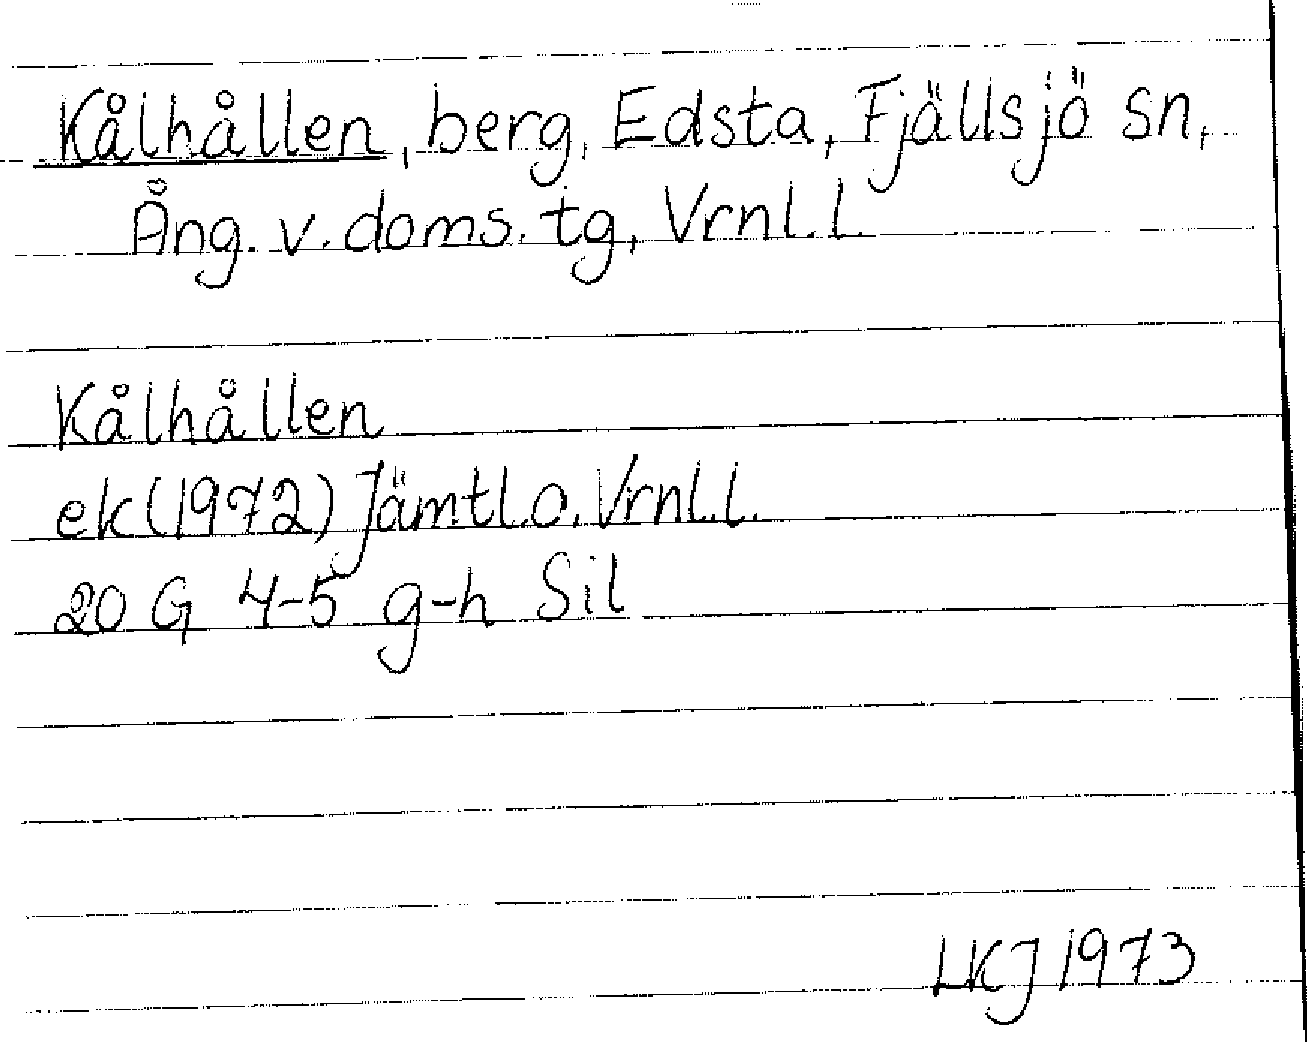 Kålhållen, berg, Edsta, Fjällsjö sn,
Ång. v. doms. tg, Vrnl. l.
Kålhållen
ek (1972) Jämtl. o. Vrnl. l.
20 G 4-5 g-h Sil
LKJ 1973